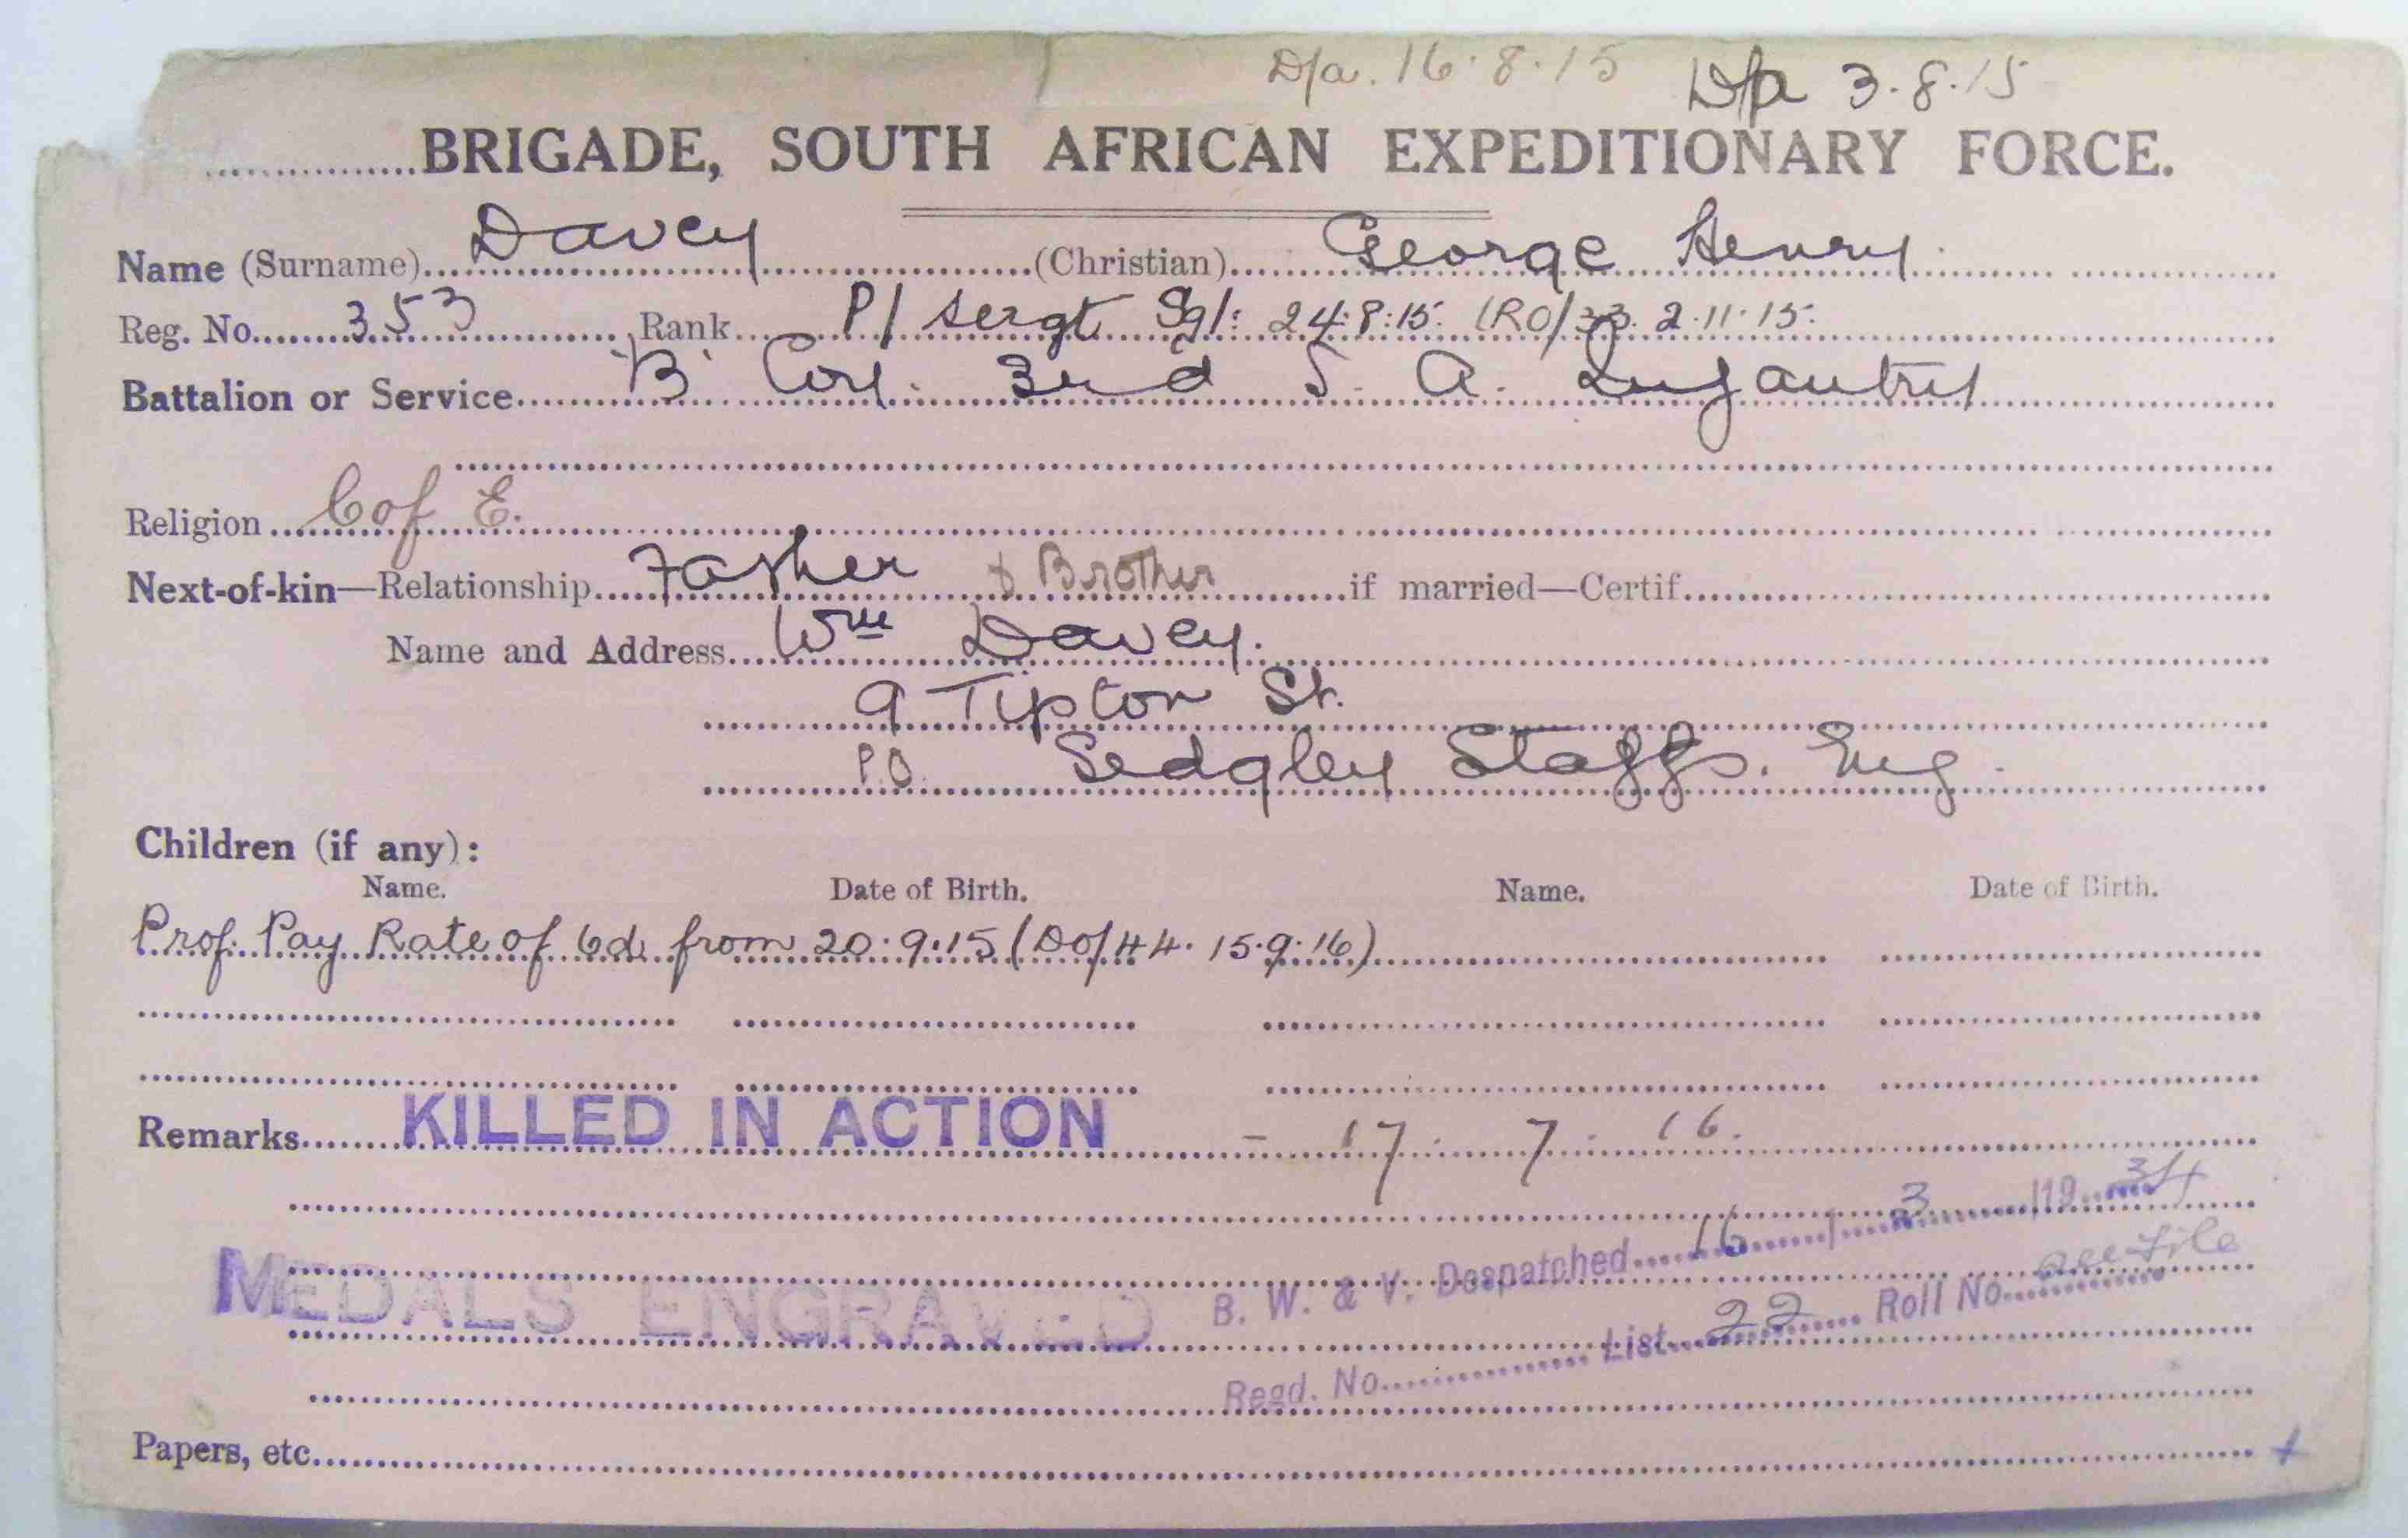 D/a. 16.8.15 D/p 3.8.15
BRIGADE, SOUTH AFRICAN EXPEDITIONARY FORCE.
Name (Surname) Davey (Christian) George Henry
Reg. No. 353 Rank P/ Sergt Sgt: 24.8.15. (RO/33. 2.11.15.
Battalion or Service 'B' Coy. 3rd S. A. Infantry
Religion C of E.
Next-of-kin—Relationship Father & Brother if married—Certif.
Name and Address Wm Davey.
9 Tipton St.
P.O. Sedgley Staffs. Eng.
Children (if any):
Name. Date of Birth. Name. Date of Birth.
Prof. Pay Rate of 6d. from 20.9.15 (DO/44. 15.9.16)
Remarks KILLED IN ACTION – 17. 7. 16.
B. W. & V. Despatched 16 / 3 /19 34
MEDALS ENGRAVED
Regd. No. List 22 Roll No. see file
Papers, etc. +